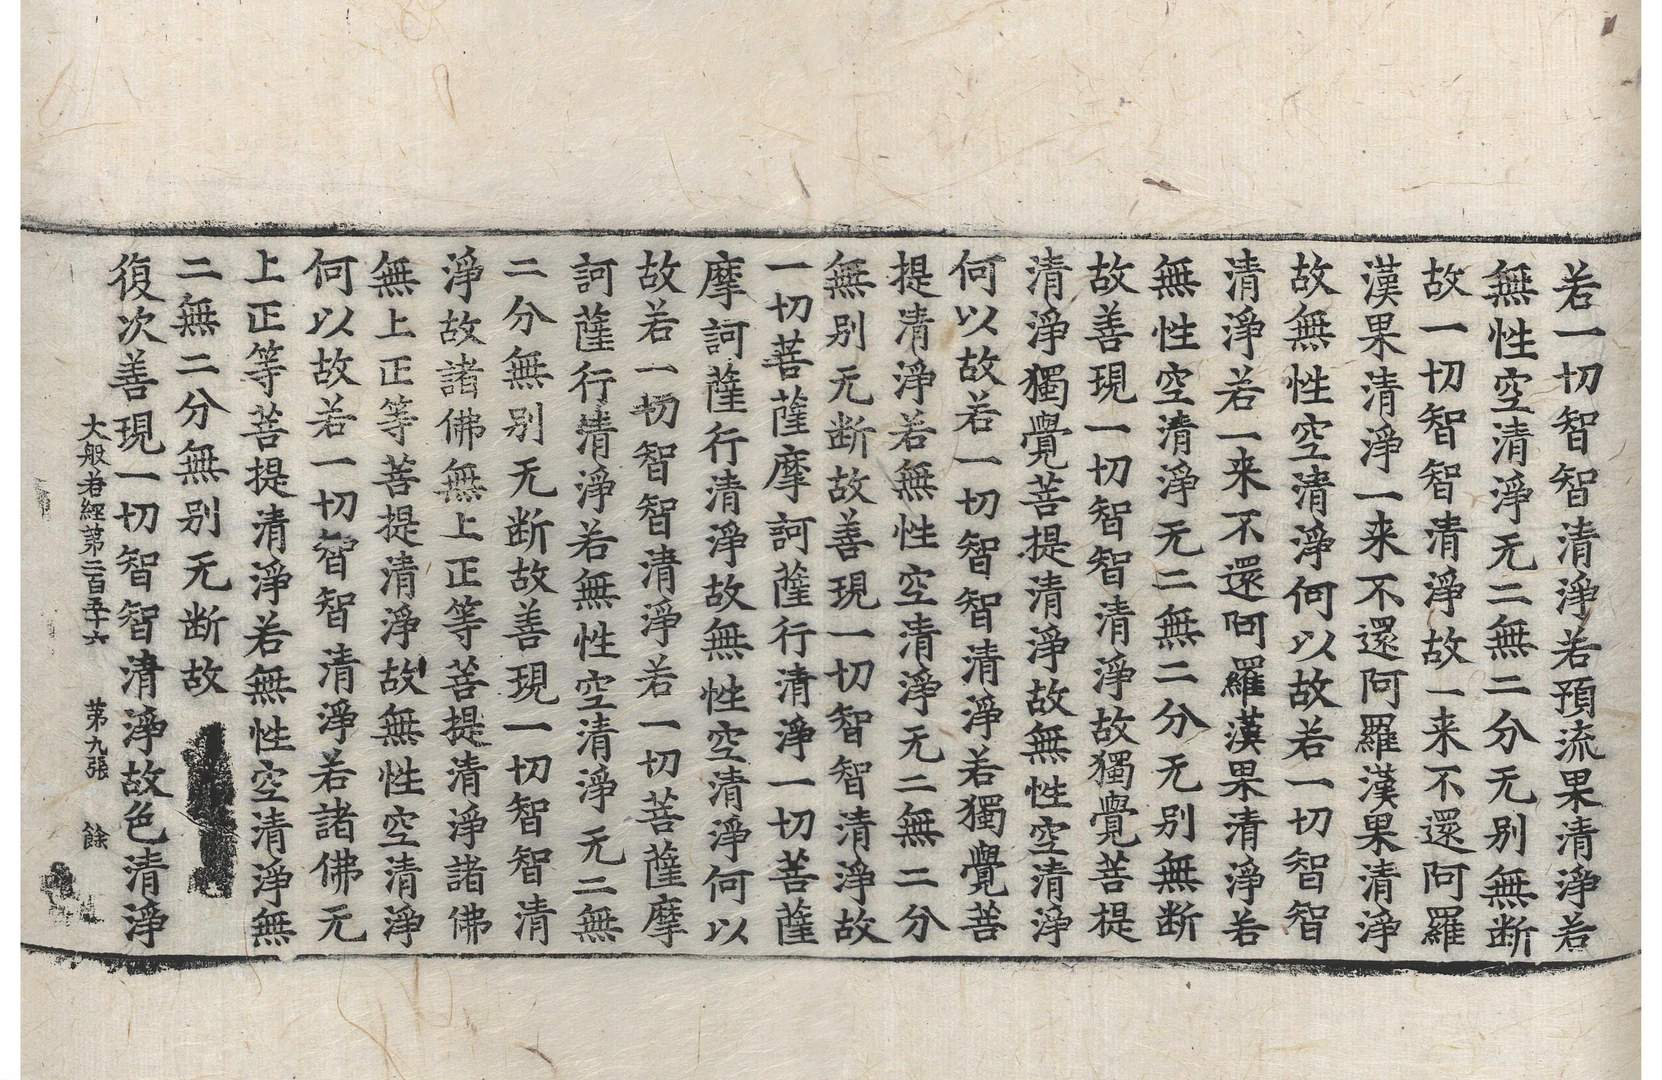 若一切智智清淨若預流果清淨若
無性空清淨无二無二分无别無断
故一切智智清淨故一来不還阿羅
漢果清淨一来不還阿羅漢果清淨
故無性空清淨何以故若一切智智
清淨若一来不還阿羅漢果清淨若
無性空清淨无二無二分无别無断
故善現一切智智清淨故獨覺菩提
清淨獨覺菩提清淨故無性空清淨
何以故若一切智智清淨若獨覺菩
提清淨若無性空清淨无二無二分
無别无断故善現一切智智清淨故
一切菩薩摩訶薩行清淨一切菩薩
摩訶薩行清淨故無性空清淨何以
故若一切智智清淨若一切菩薩摩
訶薩行清淨若無性空清淨无二無
二分無别无断故善現一切智智清
淨故諸佛無上正等菩提清淨諸佛
無上正等菩提清淨故無性空清淨
何以故若一切智智清淨若諸佛无
上正等菩提清淨若無性空清淨無
二無二分無别无断故
復次善現一切智智清淨故色清淨
大般若經第二百五十六 第九張 餘